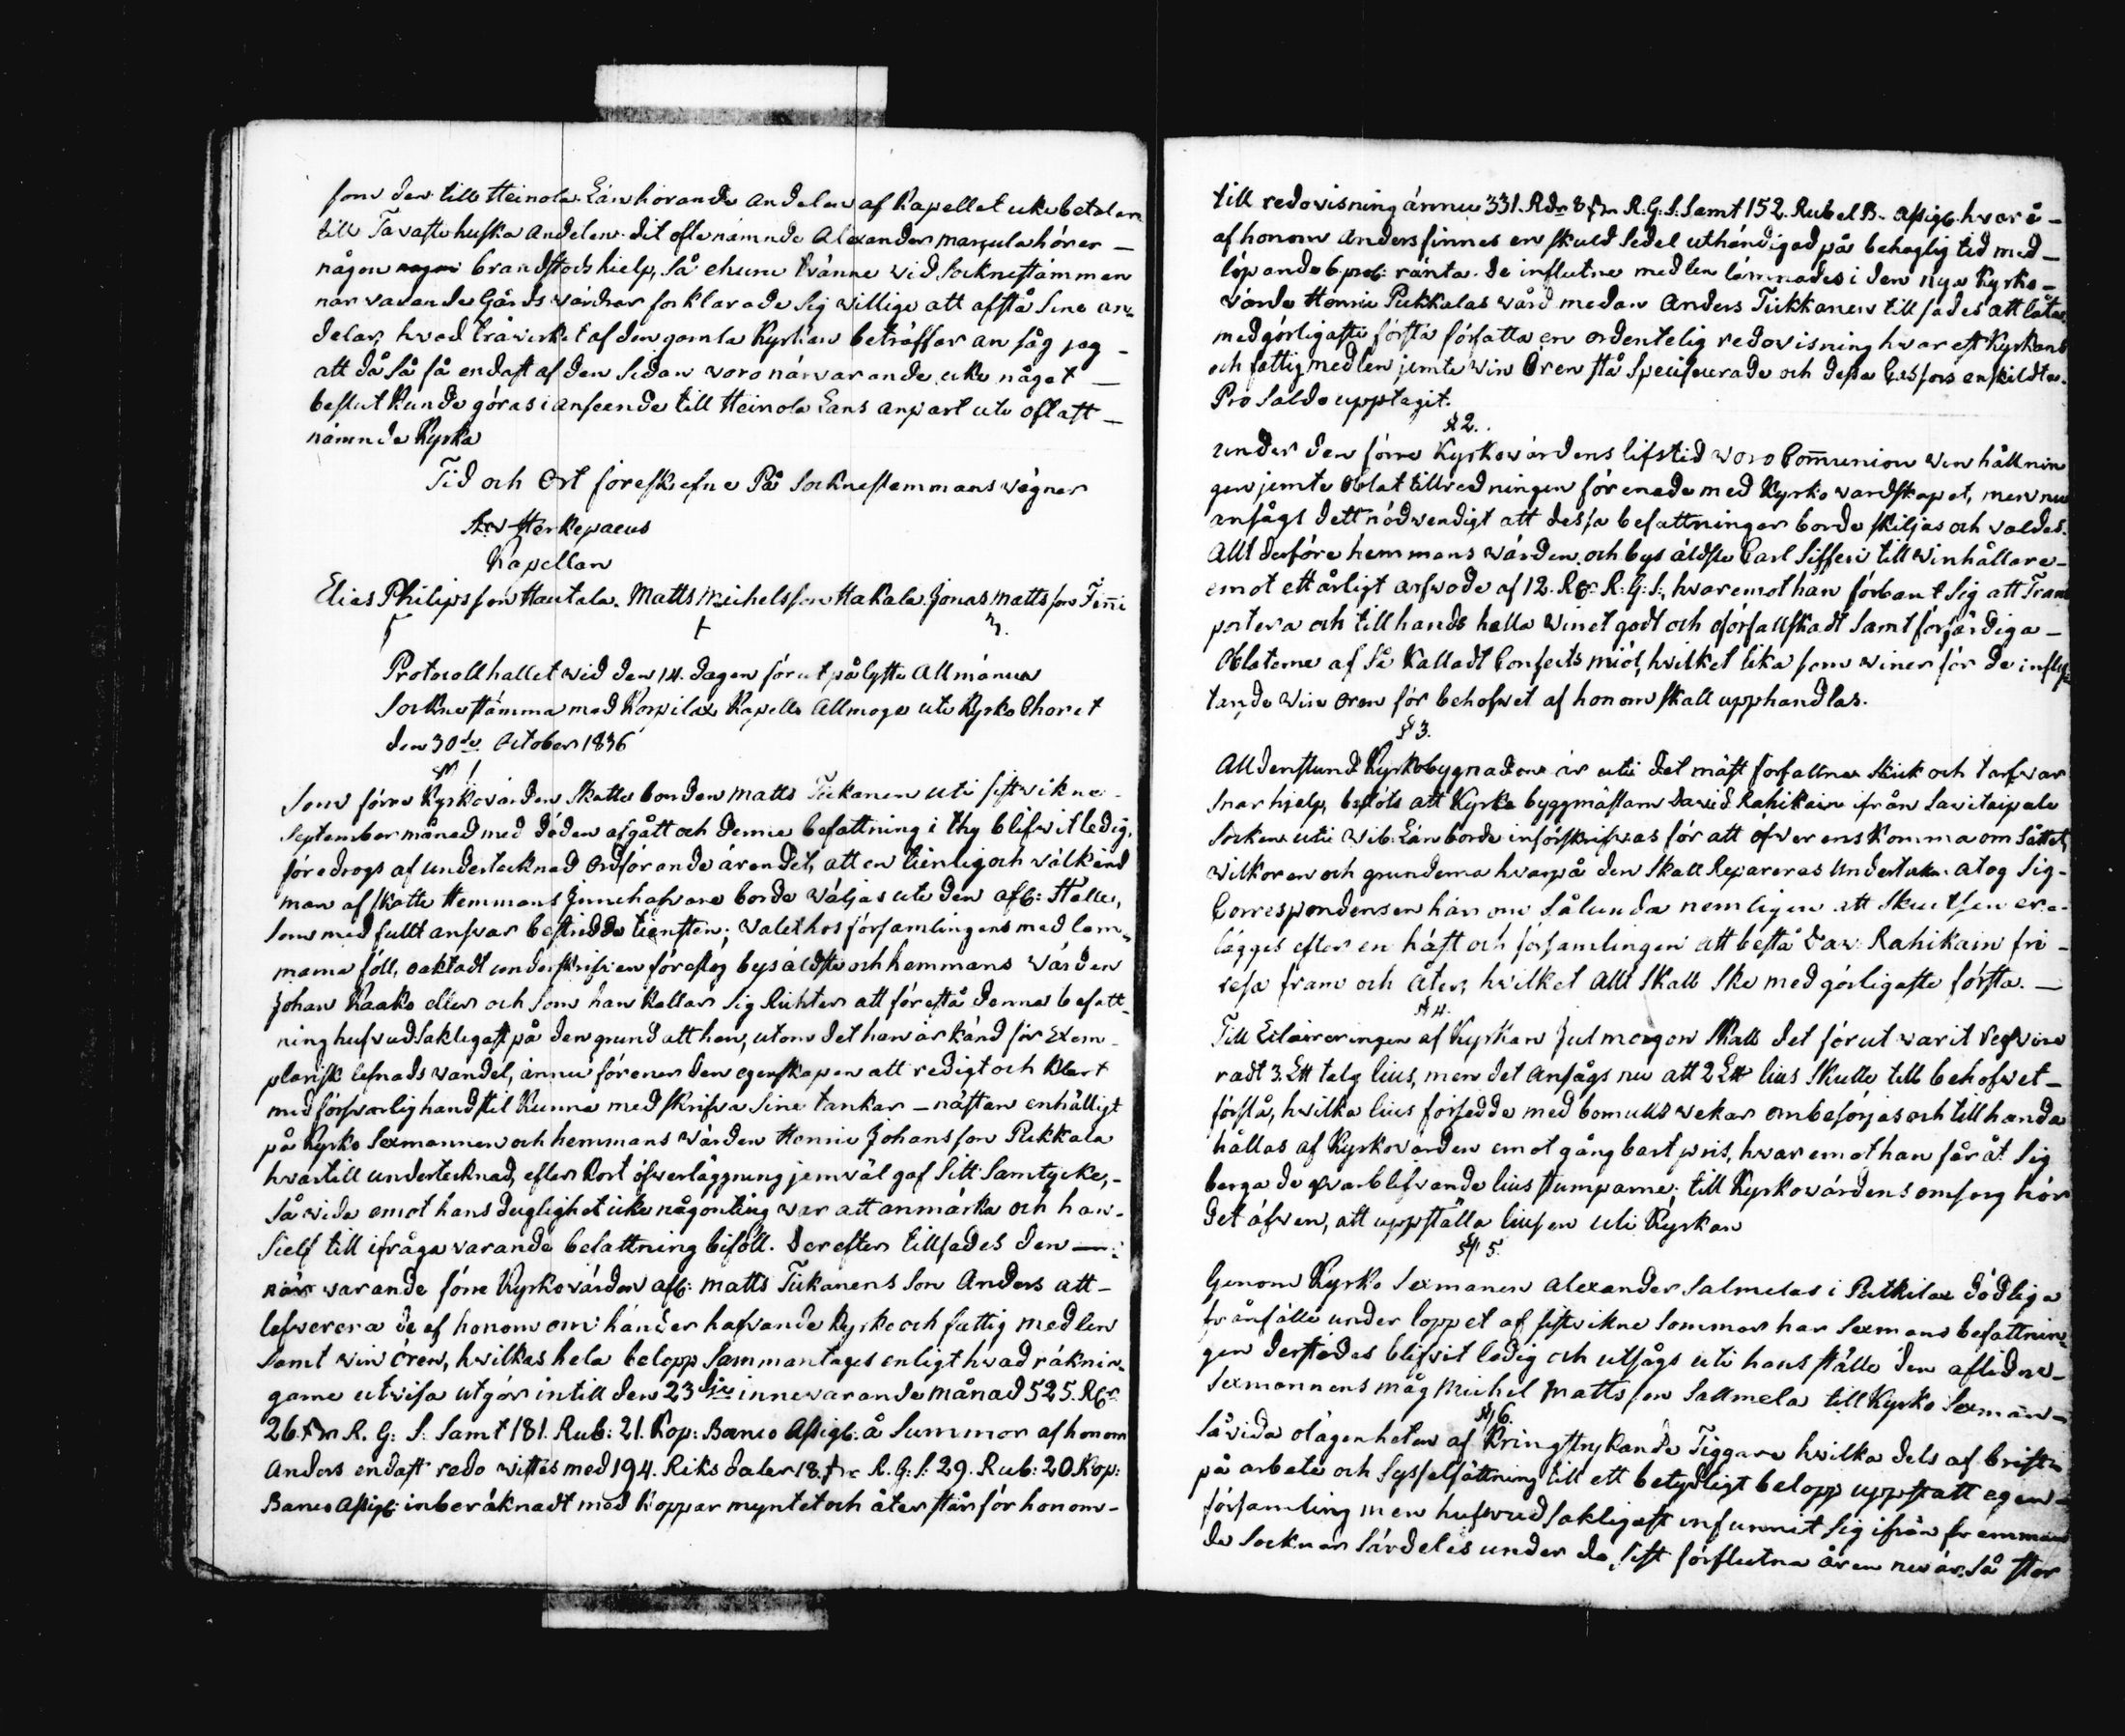 som den till Heinola Län hörande andelen af Kapellet icke betalar
till Tavastehuska andelen dit oftenämnde Alexander Mançula hörer —
någon brandstodshielp, så ehuru tvänne vid Sockneståmmen
närvarande Gårdsvärdar förklarade sig villige att afstå sine an-
delar, hvad trävirket af den gamla Kyrkan beträffar ansåg jag —
att då så få endast af den sidan voro närvarande icke något —
beslut kunde göras i anseende till Heinola Läns anpart uti oftatt —
nämnde Kyrka
Tid och Ort föreskrefne På Sockneståmmans vägnar
Herkepaeus
Kapellan
Elias Philipsson Hautala. Matts Michelsson Hakala. Jonas Mattsson Finni
Protocoll hållet vid den 14. dagen förut pålyste Allmänna
Sockneståmma med Korpilax Kapells Allmoge uti Kyrko Choret
den 30de October 1836
§ 1
Som förre Kyrkovärden Skattebonden Matts Tikanen uti sistvikne
September månad med döden afgått och denne befattning i thy blifvit ledig,
föredrogs af undertecknad Ordförande ärendet, att en tienlig och välkänd
man af Skatte Hemmans Innehafvare borde väljas uti den afl: Ställe,
som med fullt ansvar bestridde tiensten; valet hos församlingens medlem-
marne föll, oaktadt underskrifven föreslog bysäldste och hemmans Värden
Johan Raako eller och som han kallar sig Richter att förestå denna befatt-
ning hufvudsakligast på den grund att han, utom det han är känd för Exem-
plarisk lefnads vandel, ännu förenar den egenskapen att redigt och klart
med försvarlig handstil kunna med skrifva sine tankar — nästan enhälligt
på Kyrko Sexmannen och hemmans Värden Henric Johansson Pukkala
hvartill undertecknad, efter kort öfverläggning jemväl gaf sitt samtycke, —
så vida emot hans duglighet icke någonting var att anmärka och han —
sielf till ifråga varande befattning biföll. Derefter tillsades den —
när varande förre Kyrkovärden afl: Matts Tikanens Son Anders att —
lefverera de af honom om händer hafvande Kyrko och fattig medlen
samt vin ören, hvilkas hela belopp sammantages enligt hvad räknin-
garne utvisa utgör intill den 23dje innevarande månad 525. Rdr
26. R. G: S: samt 181. Rub: 21. Kop: Banco Assigt. å Summor af honom
Anders endast redo vistes med 194. Riksdaler 18. R. G: S: 29. Rub: 20 Kop:
Banco Assigt: inberäknadt med Koppar myntet och återstår för honom —
till redovisning ännu 331. Rdr 8 R. G: S: samt 152. Rubel B. Assigt. hvarå —
af honom Anders finnes en skuld sedel uthändigad på behaglig tid med —
löpande 6 proC: ränta. De influtne medlen lämnades i den nya Kyrko —
värden Henric Pukkalas vård medan Anders Tikkanen tillsades att låta
med görligaste första författa en ordentelig redovisning hvarest Kyrkans
och fattig medlen jemte Vin Ören stå Specificerade och dessa enskildta
Pro Saldo upptagit.
§ 2.
Under den förre Kyrkovärdens lifstid voro Communion vin hållnin
gen jemte Oblat tillredningen förenade med Kyrkovärdskapet, men nu
ansågs dett nödvendigt att dessa befattningar borde skiljas och valdes
Allt derföre hemmans värden och bys äldste Carl Sifferi till Vinhållare —
emot ett årligt arfvode af 12. Rdr R: G: S:, hvaremot han förbant sig att Trans
portera och till hands hålla vinet godt och oförfalskadt samt förfärdiga —
Oblaterne af så kalladt Confects miöl, hvilket lika som viner för de influ-
tande Vin ören för behofvet af honom skall upphandlas.
§ 3.
Alldenstund Kyrkobygnaden är uti det mäst förfallna skick och tarfvar
snar hjelp, beslöts att Kyrko byggmästarn David Rahikain ifrån Savitaipale
Socken uti Wib: Län borde införskrifvas för att öfverenskomma om sättet,
vilkoren och grunderna hvarpå den skall Repareras Undertekn. atog sig —
Correspondensen här om sålunda nemligen att skutsen er-
lägges efter en häst och församlingen att bestå Dav. Rahikain fri —
resa fram och åter, hvilket Allt skall ske med görligaste första. —
§ 4.
Till Eclaireringen af Kyrkan Julmorgon skall det förut varit
radt 3. L℔ talg lius, men det ansågs nu att 2 L℔ lius skulle till behofvet —
förslå, hvilka lius försedde med bomulls vekar ombesörjas och till handa
hållas af Kyrkovärden emot gångbart pris, hvaremot han får åt sig
berga de qvarblifvande lius stumparne; till Kyrkovärdens omsorg hör
det äfven, att uppställa liusen uti Kyrkan
§ 5.
Genom Kyrko Sexmanen Alexander Salmelas i Putkilax dödliga
frånfälle under loppet af sistvikne sommar har Sexmans befattnin-
gen derstädes blifvit ledig och utsågs uti hans ställe den aflidne —
Sexmannens måg Michel Mattsson Sallmela till Kyrko Sexman —
§ 6.
Så vida olägenheten af Kringstrykande Tiggare hvilka dels af brist
på arbete och Sysselsättning till ett betydligt belopp uppstått egen —
församling men hufvudsakligast infunnit sig ifrån främman
de Socknar särdeles under de sist förflutna åren nu är så stor